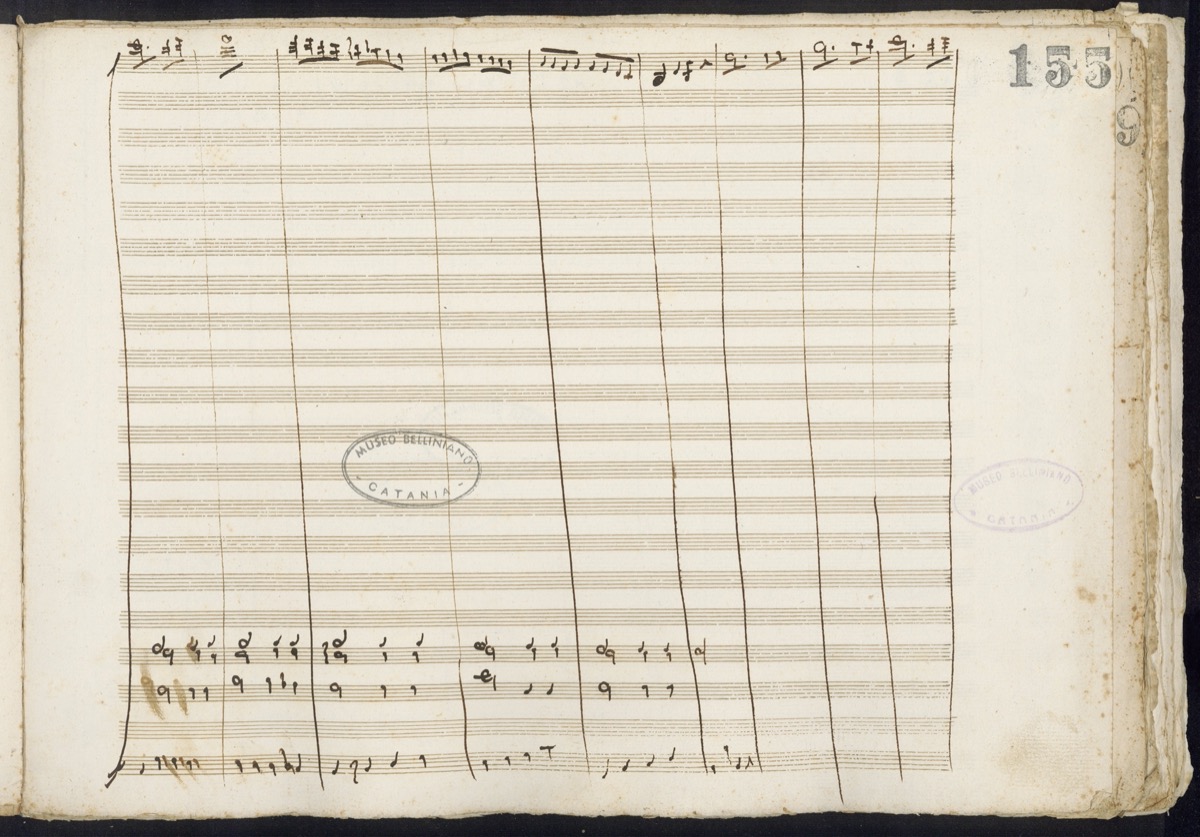 155
9
MUSEO BELLINIANO
- CATANIA -
MUSEO BELLINIANO
CATANIA